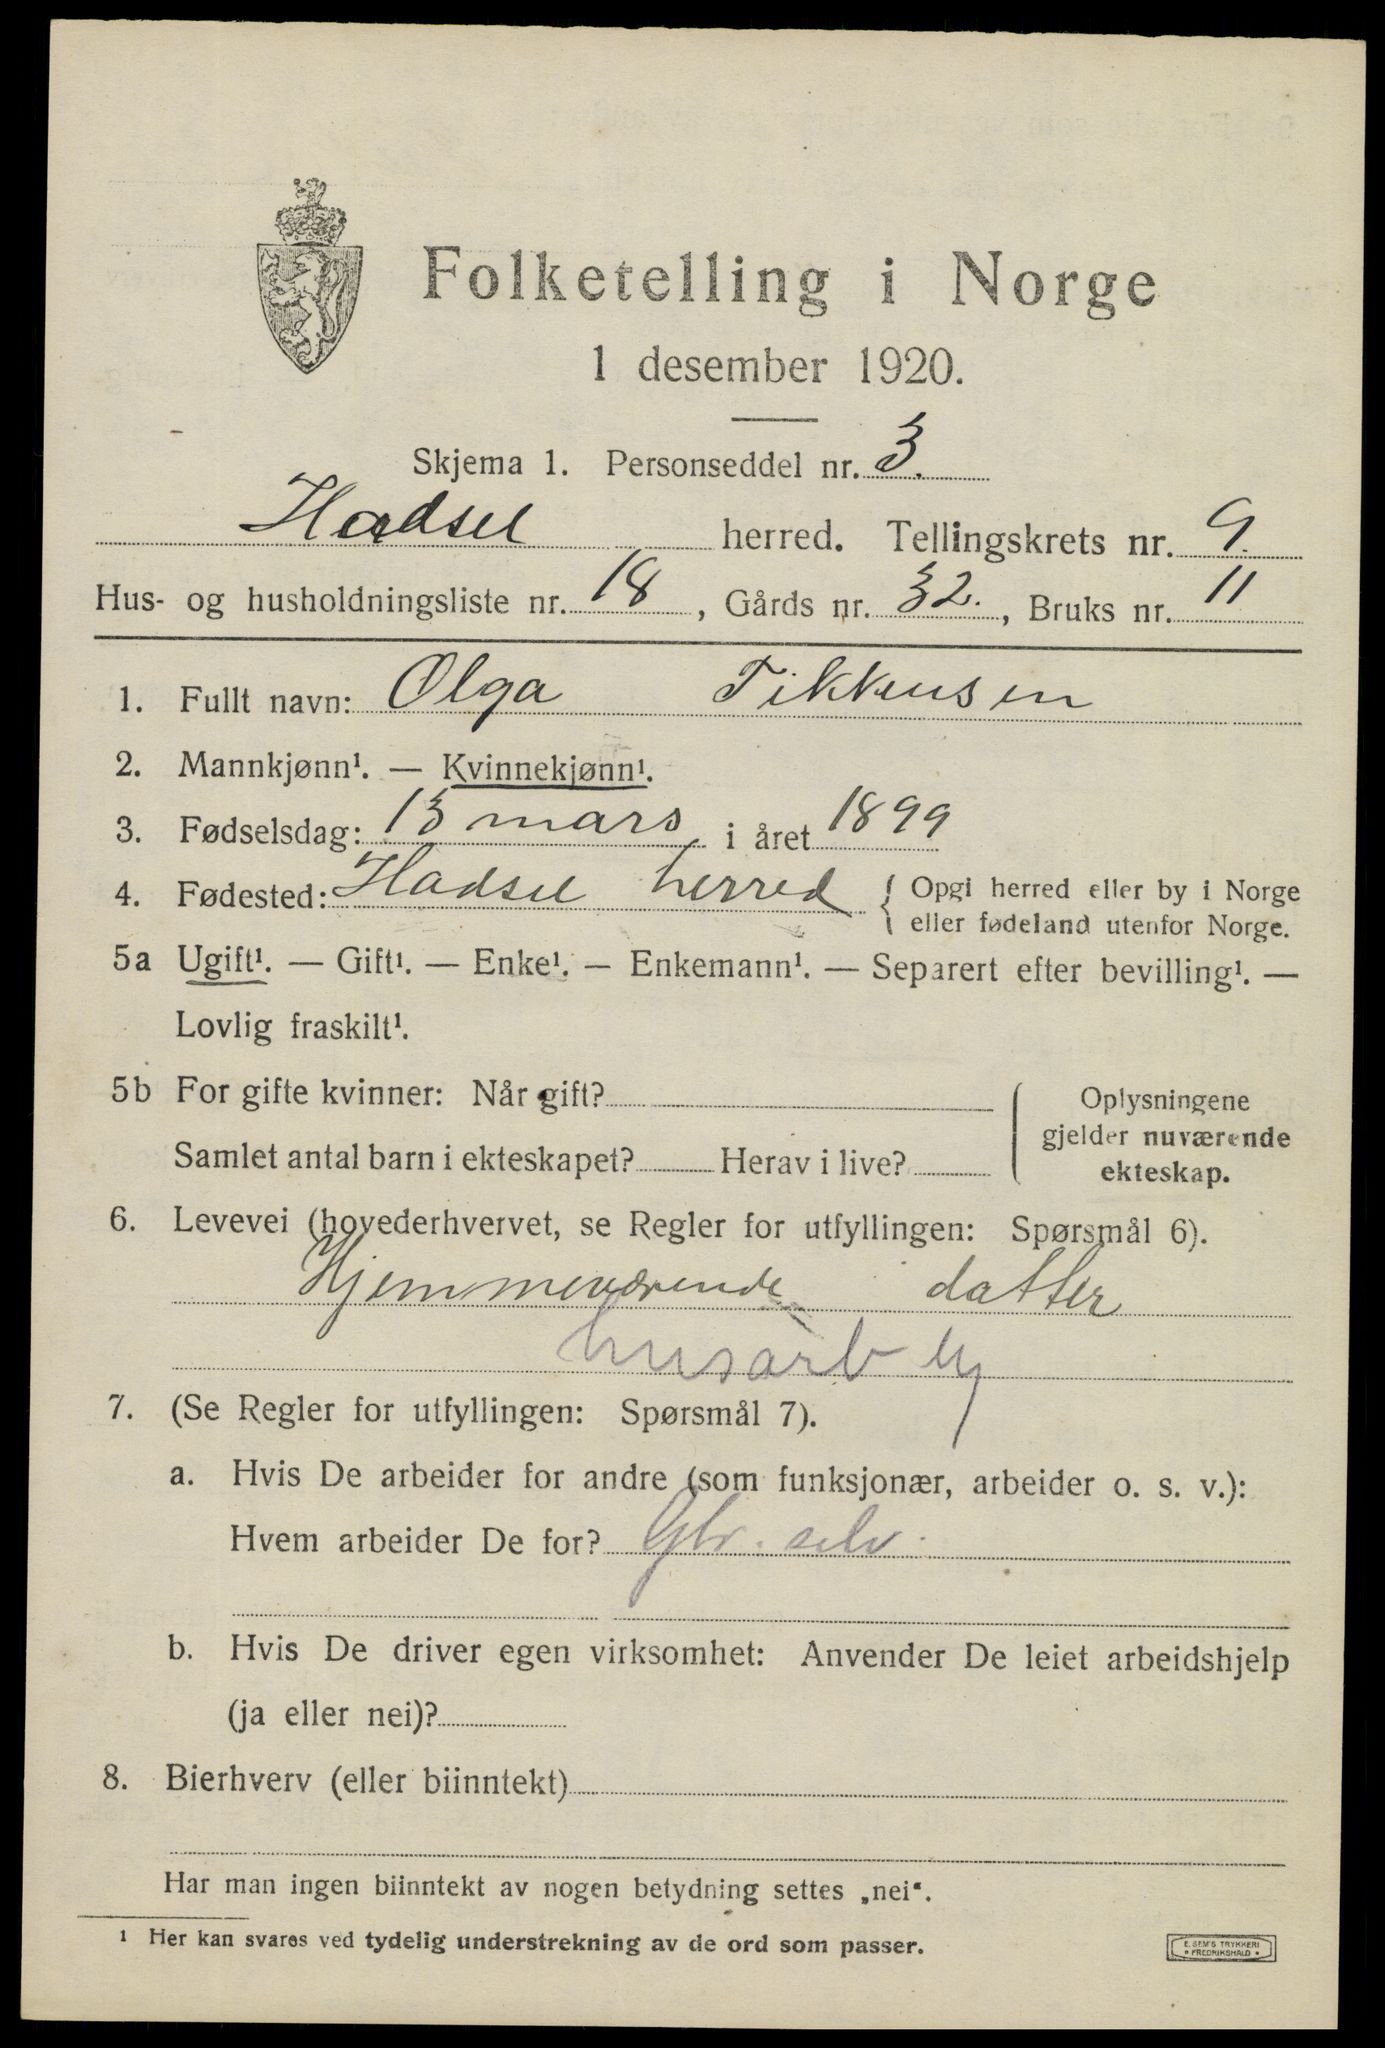 Folketelling i Norge
1 desember 1920.
Skjema 1. Personseddel nr. 3.
Hadsel herred. Tellingskrets nr. 9.
Hus- og husholdningsliste nr. 18, Gårds nr. 32., Bruks nr. 11
1. Fullt navn: Olga Tikkusen
2. Mannkjønn¹. — Kvinnekjønn¹.
3. Fødselsdag: 13 mars i året 1899
4. Fødested: Hadsel herred { Opgi herred eller by i Norge
eller fødeland utenfor Norge.
5a Ugift¹. — Gift¹. — Enke¹. — Enkemann¹. — Separert efter bevilling¹. —
Lovlig fraskilt¹.
5b For gifte kvinner: Når gift?
Samlet antal barn i ekteskapet? Herav i live?
Oplysningene
gjelder nuværende
ekteskap.
6. Levevei (hovederhvervet, se Regler for utfyllingen: Spørsmål 6).
Hjemmeværende datter
husarb
7. (Se Regler for utfyllingen: Spørsmål 7).
a. Hvis De arbeider for andre (som funksjonær, arbeider o. s. v.):
Hvem arbeider De for? Gbr. selv.
b. Hvis De driver egen virksomhet: Anvender De leiet arbeidshjelp
(ja eller nei)?
8. Bierhverv (eller biinntekt)
Har man ingen biinntekt av nogen betydning settes „nei“.
¹ Her kan svares ved tydelig understrekning av de ord som passer.
E. SEM'S TRYKKERI
• FREDRIKSHALD •